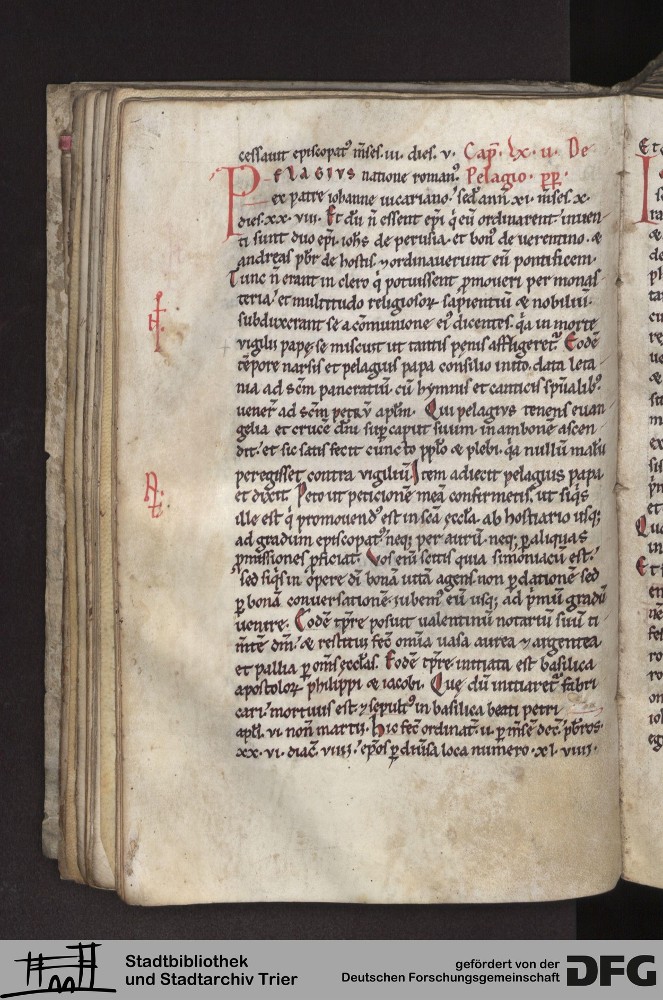 cessauit episcopat' m̄ses .iii. dies .v. Cap̄ . lx. ii. De
PELAGIVS natione roman'. Pelagio . pp̄.
ex patre iohanne uicariano. sed' ann̄ .xi. m̄ses .x.
dies .xx. viii. Et dū n̄ essent ep̄i q̇ eū ordinarent. inuen
ti sunt duo ep̄i. ioħs de perusia. et bon' de uerentino. &
andreas pb̄r de hostis. ⁊ ordinauerunt eū pontificem.
Tunc n̄ erant in clero q̇ potuissent p̄moueri per monas
teria. et multitudo religiosoꝝ sapientiū & nobiliū.
subduxerant se a cōmunione ei'. dicentes. q̇a in morte
uigilii papę se miscuit ut tantis pęnis affligeret᷑. Eodē
tēpore narsis et pelagius papa consilio inito. data leta
nia ad sc̄m pancratiū. cū hymnis et canticis sp̄ualib'.
uener̄ ad sc̄m petrū apl̄m. Qui pelagius tenens euan
gelia et crucē dn̄i sup̄ caput suum in ambonē ascen
dit. et sic satisfecit cuncto pp̄lo & plebi. q̇a nullū malū
peregisset contra vigiliū. Item adiecit pelagius papa
et dixit. Peto ut peticionē meā confirmetis. ut siq̇s
ille est q̇ promouend' est in sc̄a ęccl̄a. ab hostiario usq;
ad gradum episcopat'. neq; per aurū. neq; ꝑ aliquas
ꝓmissiones ꝓficiat. Vos eni᷒ scitis quia simoniacū est.
sed siq̇s in opere dī bonā uitā agens. non ꝑ dationē sed
ꝑ bonā conuersationē. iubem' eū usq; ad p̄mum gradū
uenire. Eodē tp̄re posuit ualentinū notariū suū ti
m̄tē dm̄. & restitui fec̄ omīa uasa aurea ⁊ argentea
et pallia ꝑ om̄s ęccl̄as. Eodē tp̄re initiata est basilica
apostoloꝝ philippi & iacobi. Quę dū initiaret᷑ fabri
cari. mortuus est. ⁊ sepult' in basilica beati petri
apl̄i .vi. non̄ martii. Hic fec̄ ordinat̄ .ii. ꝑ m̄se᷒ dec̄. pb̄ros
xx. vi. diac̄ viiii. ep̄os ꝑ diu̅sa loca numero .xl. viiii.
Stadtbibliothek
und Stadtarchiv Trier
gefördert von der
Deutschen Forschungsgemeinschaft
DFG